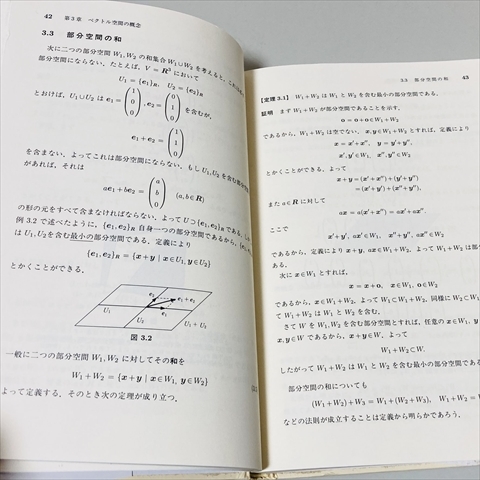 42 第3章 ベクトル空間の概念
3.3 部分空間の和
次に二つの部分空間 W₁, W₂ の和集合 W₁∪W₂ を考えると、これは
部分空間にならない. たとえば, V = R³ において
U₁ = {e₁}_R, U₂ = {e₂}_R
とおけば, U₁∪U₂ は e₁ = (1 0 0), e₂ = (0 1 0) を含むが,
e₁+e₂ = (1 1 0)
を含まない. よってこれは部分空間にならない. もし U₁, U₂ を含む部分空間
があれば, それは
ae₁+be₂ = (a b 0) (a, b∈R)
の形の元をすべて含まなければならない. よって U⊃{e₁, e₂}_R である.
例 3.2 で述べたように, {e₁, e₂}_R 自身一つの部分空間であるから, {e₁,
は U₁, U₂を含む最小の部分空間である. 定義により
{e₁, e₂}_R = {x+y | x∈U₁, y∈U₂}
とかくことができる.
e₂ e₁+e₂
e₁
U₂ U₁ U₁+U₂
図 3.2
一般に二つの部分空間 W₁, W₂ に対してその和を
W₁+W₂ = {x+y | x∈W₁, y∈W₂}
よって定義する. そのとき次の定理が成り立つ.
3.3 部分空間の和 43
【定理 3.1】 W₁+W₂ は W₁ と W₂ を含む最小の部分空間である.
証明 まず W₁+W₂ が部分空間であることを示す.
o = o+o∈W₁+W₂
であるから, W₁+W₂ は空でない. x, y∈W₁+W₂ とすれば, 定義により
x = x′+x″, y = y′+y″,
x′, y′∈W₁, x″, y″∈W₂
とかくことができる. よって
x+y = (x′+x″)+(y′+y″)
= (x′+y′)+(x″+y″),
また a∈R に対して
ax = a(x′+x″) = ax′+ax″.
ここで
x′+y′, ax′∈W₁, x″+y″, ax″∈W₂
であるから, 定義により x+y, ax∈W₁+W₂. よって W₁+W₂ は部分
ある.
次に x∈W₁ とすれば,
x = x+o, x∈W₁, o∈W₂
であるから, x∈W₁+W₂. よって W₁⊂W₁+W₂. 同様に W₂⊂W₁
て W₁+W₂ は W₁ と W₂ を含む.
さて W を W₁, W₂ を含む部分空間とすれば, 任意の x∈W₁, y
x, y∈W であるから, x+y∈W. よって
W₁+W₂⊂W.
したがって W₁+W₂ は W₁ と W₂ を含む最小の部分空間である
部分空間の和についても
(W₁+W₂)+W₃ = W₁+(W₂+W₃), W₁+W₂ =
などの法則が成立することは定義から明らかであろう.